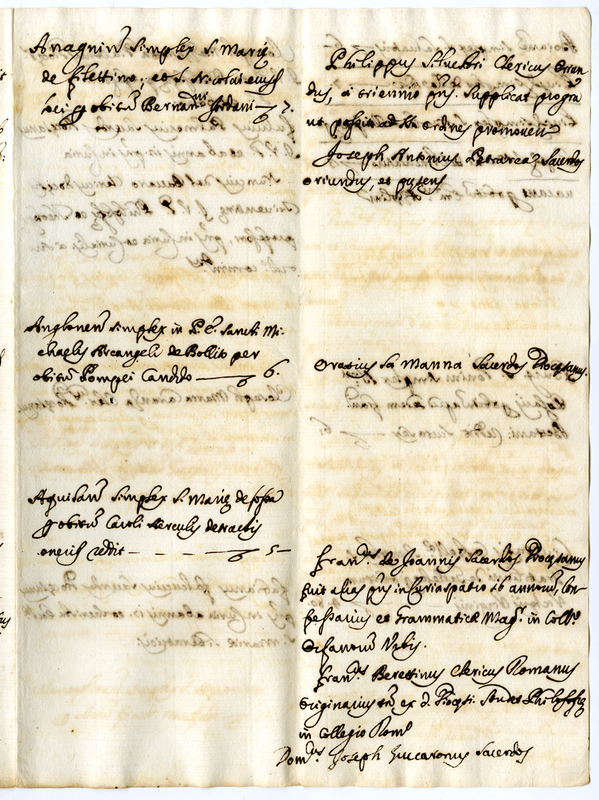 Anagniñ simplex S. Mariæ
de filettino, et S. Nicolai eiusd
loci ꝑ obitũ Bernardni Jordani — 7.
Philippus Silvestri Clericus Oriun
dus, a triennio pñs. Supplicat pro gra
ut possit ad sacros ordines promoveri
Joseph Antonius Petrarca Sacerdos
oriundus, et pñsens
Anglonen̄ simplex in P. E. Sancti Mi-
chaelis Arcangeli de Bollito per
obitũ Pompei Candido — 6.
Oratius La Manna Sacerdos Diœcesanus.
Aquilan̄ simplex S. Mariæ de fossa
ꝑ obitũ Caroli Herculis detractis
oneribus reddit - - - — 5 -
Fran.cus de Joannis Sacerdos Diœcesanus
fuit alias pñs in Curia spatio 16 annorũ, Con-
fessarius et Grammaticæ Mag.r in Coll.o
Orfanorũ Urbis.
Fran.cus Berettinus Clericus Romanus
Originarius tñ ex d. Diœcesi. Studet Philosophiæ
in Collegio Rom.o
Dom.cus Joseph Zuccaronus Sacerdos